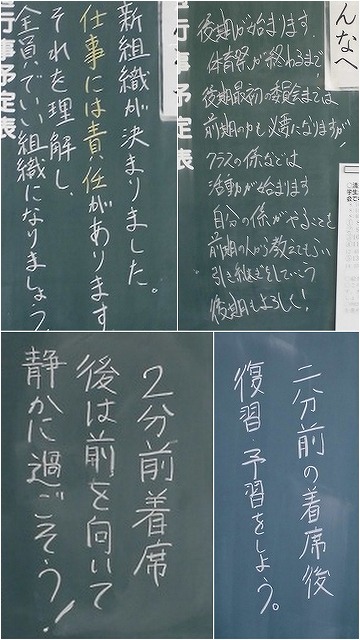 新組織が決まりました。
仕事には責任があります
それを理解し、
全員でいい組織になりましょう
行事予定表
後期が始まります。
体育祭が終わるまで、
後期最初の委員会までは
前期の力も必要になりますが、
クラスの係などでは
活動が始まります
自分の係がやることを
前期の人から教えてもらい
引き継ぎをしていこう
後期もよろしく！
行事予定表
んなへ
2分前着席
後は前を向いて
静かに過ごそう！
二分前の着席後
復習・予習をしよう。